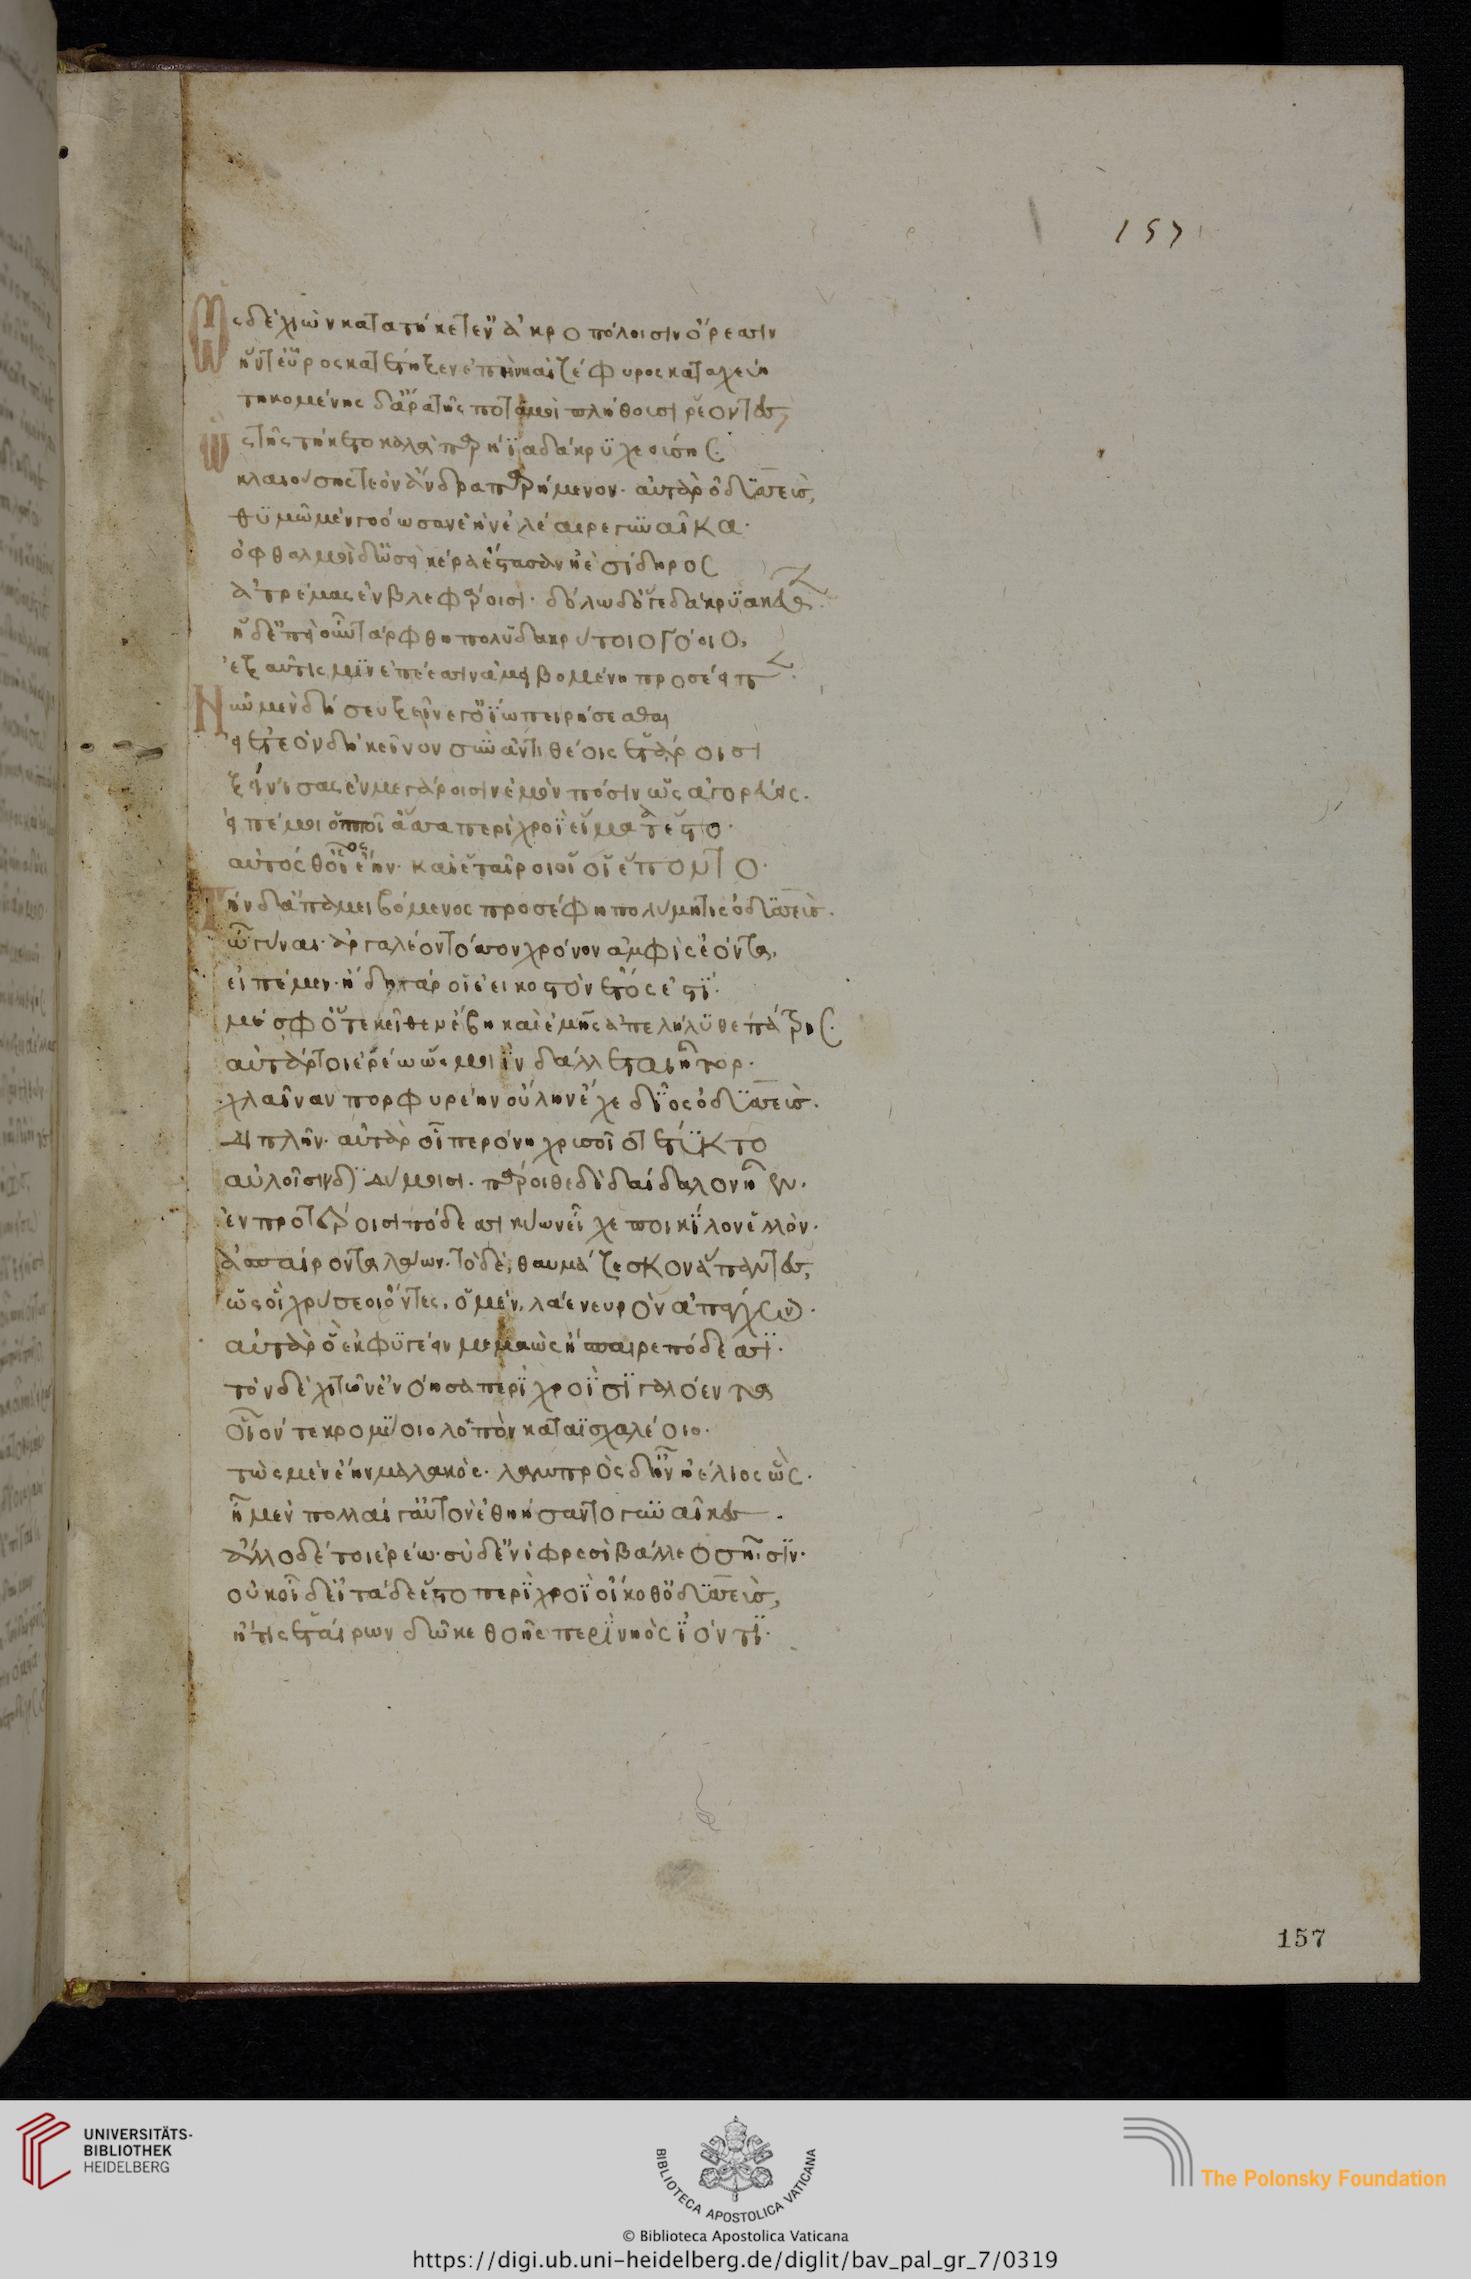 157
Ὡς δὲ χιὼν κατατήκετ' ἐν ἀκροπόλοισιν ὄρεσσιν
ἥντ' εὖρος κατέτηξεν ἐπὴν καὶ ζέφυρος καταχείη
τηκομένης δ' ἄρα τῆς ποταμοὶ πλήθουσι ῥέοντες,
Ὣς τῆς τήκετο καλὰ παρήϊα δάκρυ χεούσης.
κλαιούσης τεὸν ἄνδρα παρήμενον· αὐτὰρ ὀδυσσεύς,
θυμῶ μὲν γοόωσαν ἑὴν ἐλέαιρε γυναῖκα·
ὀφθαλμοὶ δ' ὡσεὶ κέρα ἕστασαν ἠὲ σίδηρος
ἀτρέμας ἐν βλεφάροισι· δόλω δ' ὅγε δάκρυα κεῦθε.
ἡ δ' ἐπεὶ οὖν τάρφθη πολυδακρύτοιο γόοιο,
ἐξαῦτίς μιν ἐπέεσσιν ἀμειβομένη προσέειπε.
Νῦν μὲν δή σευ ξεῖνέ γ' ὀΐω πειρήσεσθαι
εἰ ἐτεὸν δὴ κεῖνον σὺν ἀντιθέοις ἑτάροισι
ξείνισας ἐν μεγάροισιν ἐμὸν πόσιν ὡς ἀγορεύεις.
εἰπέ μοι ὁπποῖ' ἅσσα περὶ χροῒ εἵματα ἕστο·
αὐτός θ' οἷος ἔην· καὶ ἑταῖροι οἵ οἱ ἕποντο·
Τὴν δ' ἀπαμειβόμενος προσέφη πολύμητις ὀδυσσεύς.
ὦ γύναι· ἀργαλέον τόσσον χρόνον ἀμφὶς ἐόντα,
εἰπέμεν· ἤδη γάρ οἱ ἐεικοστὸν ἔτος ἐστί·
μέσφ' ὅτε κεῖθεν ἔβη καὶ ἐμῆς ἀπελήλυθε πάτρης.
αὐτάρ τοι ἐρέω ὥς μοι ἰνδάλλεται ἦτορ·
χλαῖναν πορφυρέην οὔλην ἔχε δῖος ὀδυσσεύς.
διπλῆν· αὐτάρ οἱ περόνη χρυσοῖο τέτυκτο
αὐλοῖσιν διδύμοισι· πάροιθε δὲ δαίδαλον ἦεν.
ἐν προτέροισι πόδεσσι κύων εἶχε ποικίλον ἐλλόν·
ἀσπαίροντα λάων· τὸ δὲ, θαυμάζεσκον ἅπαντες,
ὡς οἱ χρύσεοι ὄντες, ὁ μὲν, λάε νευρὸν ἀπάγχων·
αὐτὰρ ὁ ἐκφυγέειν μεμαὼς ἤσπαιρε πόδεσσι·
τὸν δὲ χιτῶν' ἐνόησα περὶ χροῒ σιγαλόεντα
οἷόν τε κρομύοιο λοπὸν κατα ἰσχαλέοιο·
τὼς μὲν ἔην μαλακός· λαμπρὸς δ' ἦν ἠέλιος ὥς.
ἦ μὲν πολλαί γ' αὐτὸν ἐθηήσαντο γυναῖκες.
ἄλλο δέ τοι ἐρέω· σὺ δ' ἐνὶ φρεσὶ βάλλεο σῆισιν·
οὐκ οἶδ' εἰ τάδε ἕστο περὶ χροῒ οἴκοθ' ὀδυσσεύς,
ἤ τις ἑταίρων δῶκε θοῆς περὶ νηὸς ἰόντι·
157
UNIVERSITÄTS-
BIBLIOTHEK
HEIDELBERG
BIBLIOTECA APOSTOLICA VATICANA
The Polonsky Foundation
© Biblioteca Apostolica Vaticana
https://digi.ub.uni-heidelberg.de/diglit/bav_pal_gr_7/0319